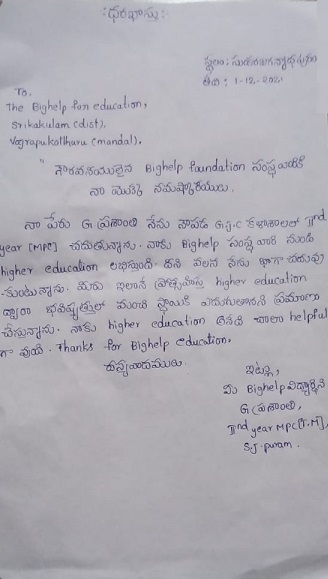 :ధరఖాస్తు:
స్థలం: సుదర్శనజగన్నాధపురం
తేది: 1-12-2021
To,
The Bighelp for education,
Srikakulam (dist),
Vajrapukotturu (mandal),
గౌరవనీయులైన Bighelp foundation సంస్థ వారికి
నా యొక్క నమస్కారములు.
నా పేరు G ప్రశాంతి నేను నౌపడ G.J.C కళాశాలలో IInd
year (MPC) చదువుతున్నాను. నాకు Bighelp సంస్థ వారి నుండి
higher education లభిస్తుంది. దీని వలన నేను బాగా చదువు
-కుంటున్నాను. మీరు ఇలానే ప్రోత్సహిస్తే higher education
ద్వారా భవిష్యత్తులో మంచి స్థాయికి ఎదుగుతానని ప్రమాణం
చేస్తున్నాను. నాకు higher education అనేది చాలా helpful
గా వుంది. Thanks for Bighelp education,
ధన్యవాదములు.
ఇట్లు,
మీ Bighelp విద్యార్థిని
G ప్రశాంతి,
IInd year MPC[T.M],
S.J-puram.